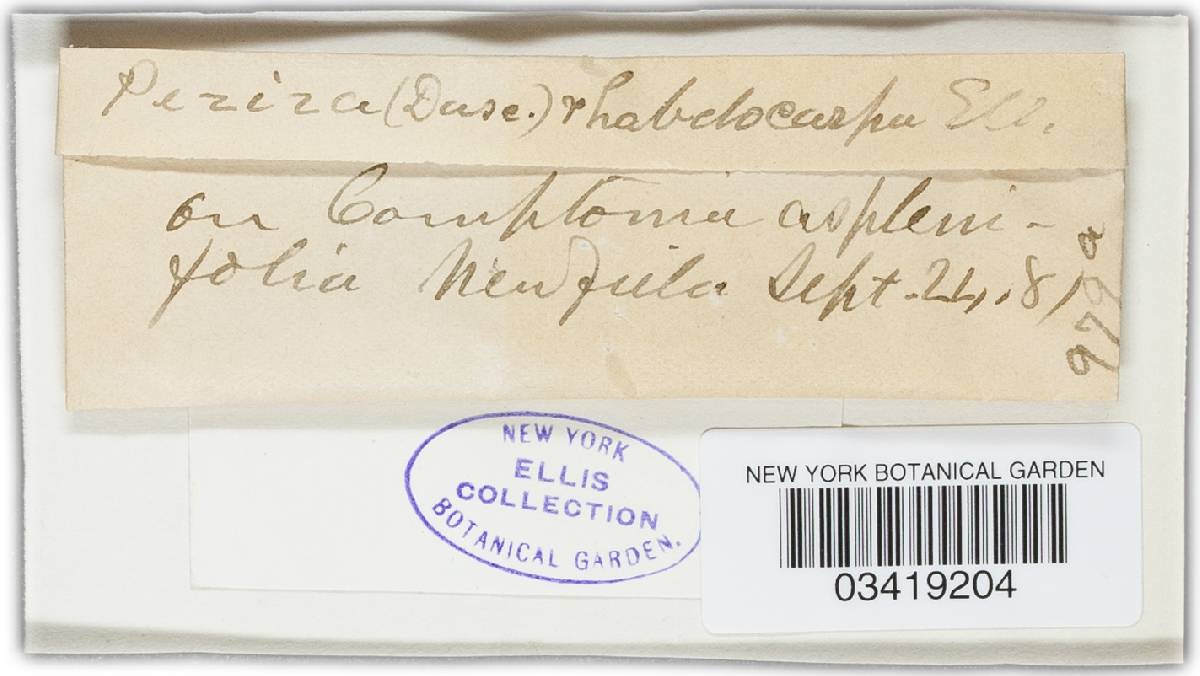 Peziza (Dasc.) rhabdocarpa Ell.
on Comptonia aspleni-
folia Newfield Sept. 24, 81
979a
NEW YORK
ELLIS
COLLECTION
BOTANICAL GARDEN.
NEW YORK BOTANICAL GARDEN
03419204